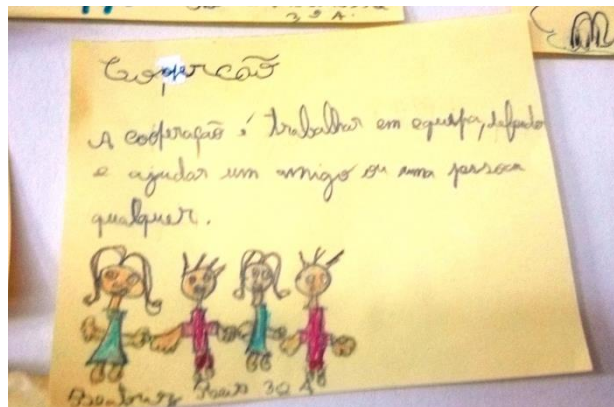 3º A.
Cooperção
A cooperação é trabalhar em equipa,
e ajudar um amigo ou uma pessoa
qualquer.
Beatriz Reis 3º A